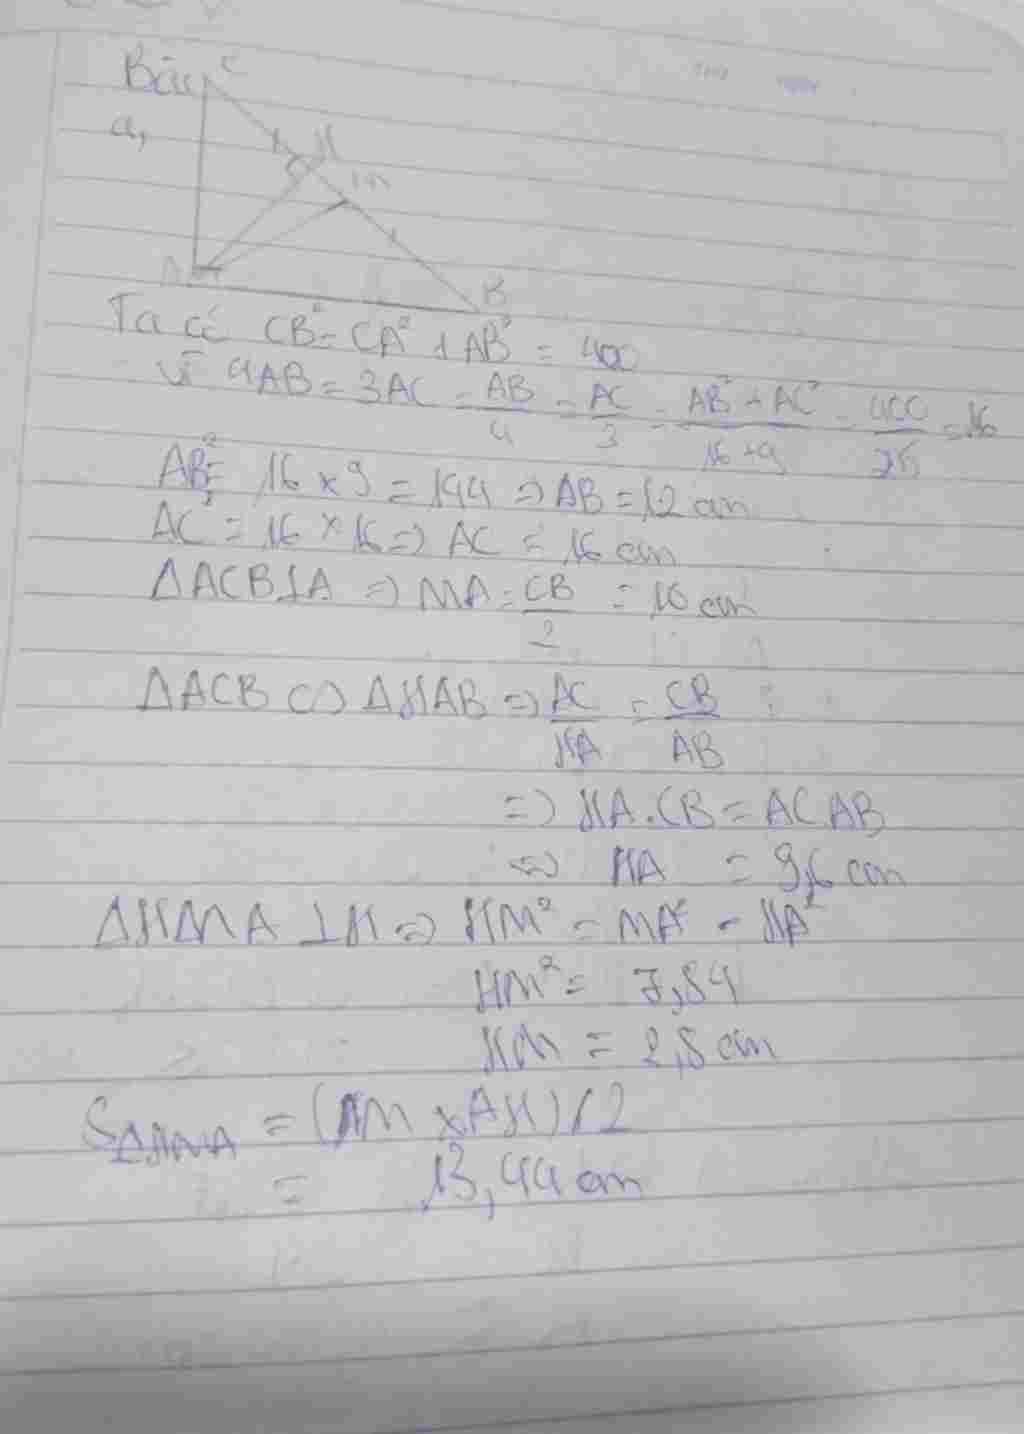 Bài
C
a,
H
m
A
B
Ta có CB² = CA² + AB² = 400
Vì 4AB = 3AC = AB/4 = AC/3 = AB² + AC²/16 + 9 = 400/25 = 16
AB² = 16 x 9 = 144 => AB = 12 cm
AC² = 16 x 16 => AC = 16 cm
ΔACB ⊥ A => MA = CB/2 = 10 cm
ΔACB ∽ ΔHAB => AC/HA = CB/AB
=> HA . CB = AC AB
<=> HA = 9,6 cm
ΔHMA ⊥ H => HM² = MA² - HA²
HM² = 7,84
HM = 2,8 cm
SΔHMA = (HM x AH) / 2
= 13,44 cm